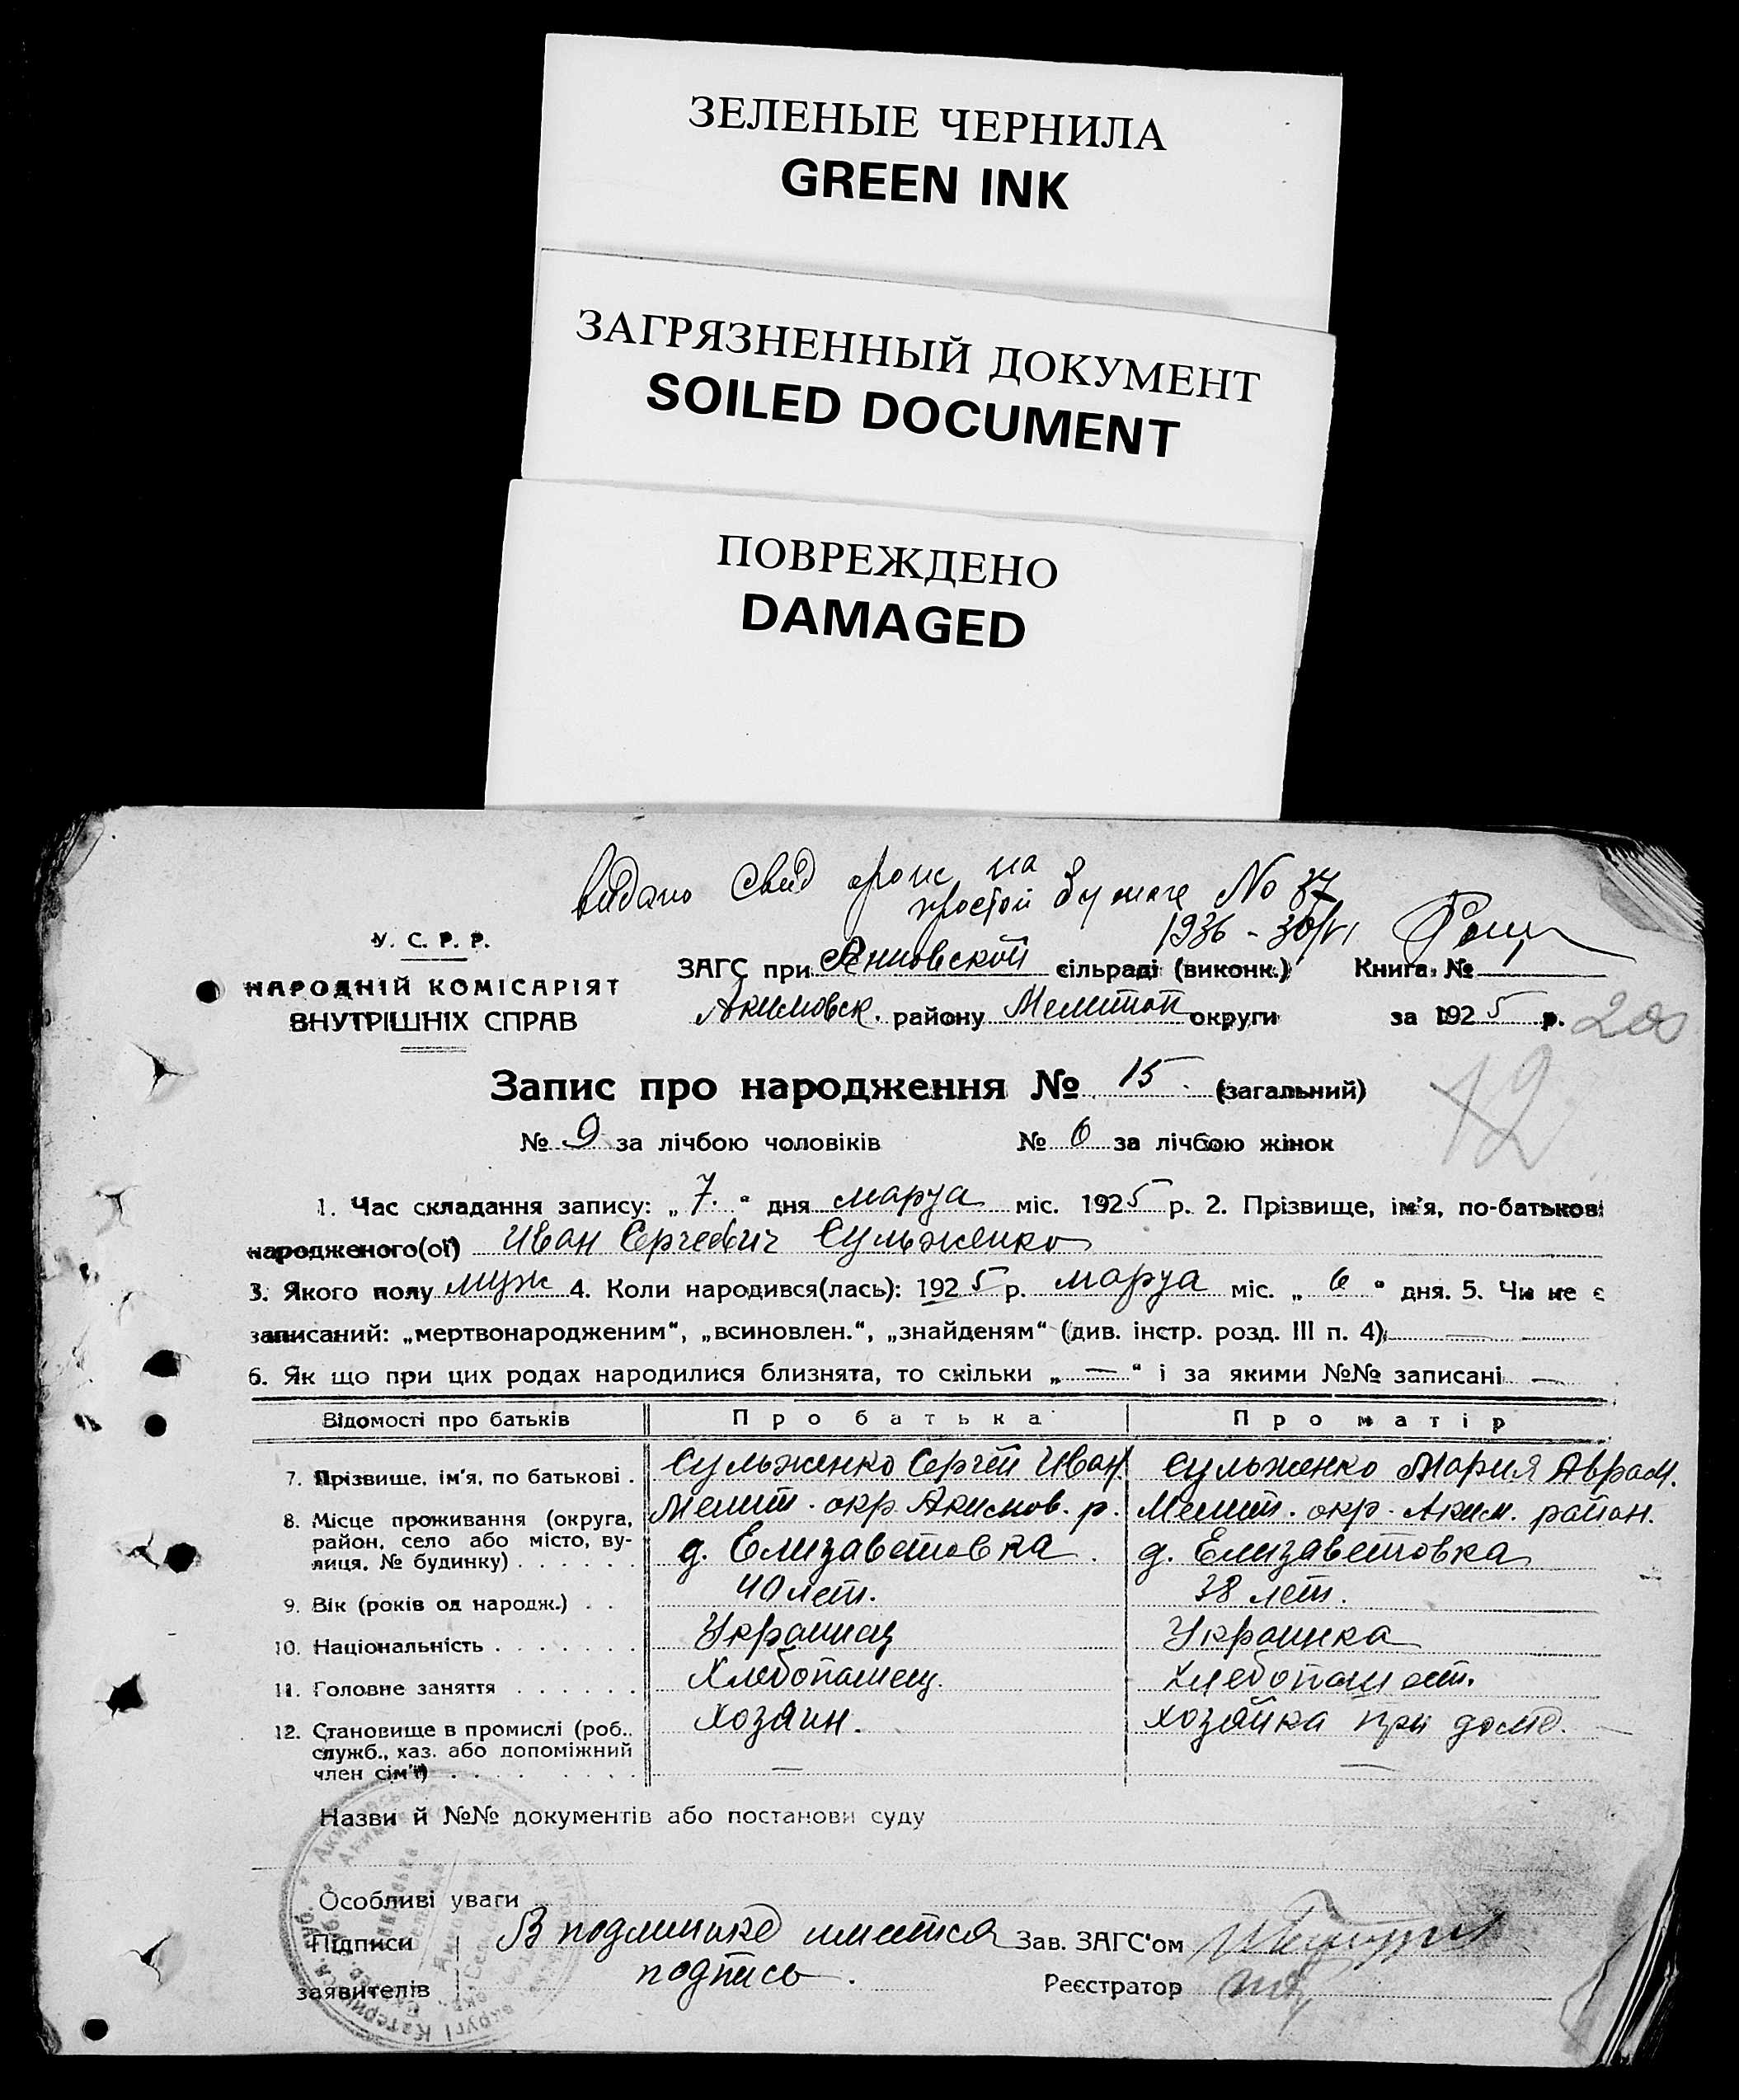 ЗЕЛЕНЫЕ ЧЕРНИЛА
GREEN INK
ЗАГРЯЗНЕННЫЙ ДОКУМЕНТ
SOILED DOCUMENT
ПОВРЕЖДЕНО
DAMAGED
видано свид на
простой бумаге No 37
1936 - 30/VI
У. С. Р. Р.
НАРОДНІЙ КОМІСАРІЯТ
ВНУТРІШНІХ СПРАВ
ЗАГС при Янновской сільраді (виконк.) Книга №
Акимовск. району Мелитоп округи за 1925 р. 200
12
Запис про народження № 15. (загальний)
№ 9 за лічбою чоловіків № 6 за лічбою жінок
1. Час складання запису: „7.“ дня марта міс. 1925 р. 2. Прізвище, ім'я, по-батькові
народженого(ої) Иван Сергеевич Сульженко
3. Якого полу муж 4. Коли народився(лась): 1925 р. марта міс. „6“ дня. 5. Чи не є
записаний: „мертвонародженим“, „всиновлен.“, „знайденям“ (див. інстр. розд. III п. 4): —
6. Як що при цих родах народилися близнята, то скільки „—“ і за якими №№ записані —
Відомості про батьків Про батька Про матір
7. Прізвище, ім'я, по батькові . Сульженко Сергей Иван. Сульженко Мария Аврам.
8. Місце проживання (округа, район, село або місто, вулиця, № будинку) . . . . . Мелит. окр. Акимов. р. Мелит. окр. Аким. район.
д. Елизаветовка . д. Елизаветовка
9. Вік (років од народж.) . . 40 лет. 38 лет.
10. Національність . . . . . . . Украинец Украинка
11. Головне заняття . . . . . . Хлебопашец. хлебопашест.
12. Становище в промислі (роб., служб., хаз. або допоміжний член сім'ї) . . . . . . . . Хозяин. хозяйка при доме.
— —
Назви й №№ документів або постанови суду
Особливі уваги
Підписи В подлинике имеется Зав. ЗАГС'ом
заявителів подпись. Реєстратор